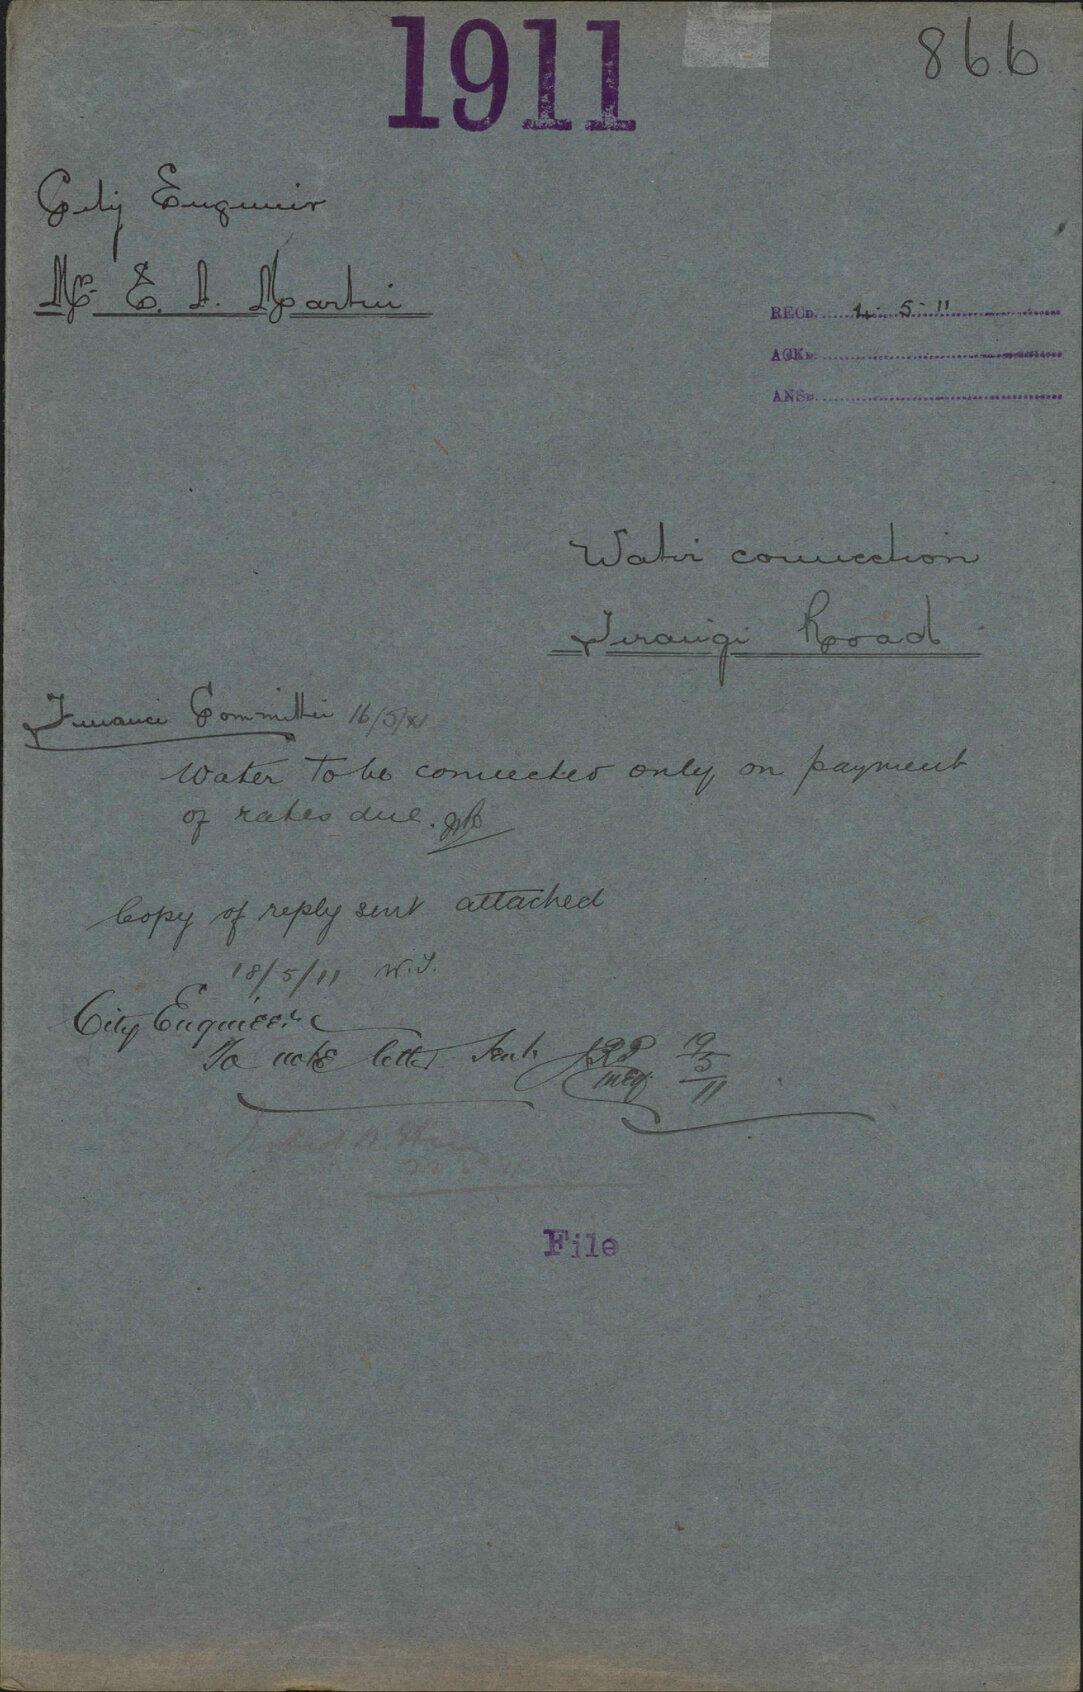 1911
866
City Engineer
Mr E. A. Martin
RECD. 4 5 11
ACKD.
ANSD.
Water connection
Turangi Road
Finance Committee 16/5/XI
Water to be connected only on payment
of rates due.
Copy of reply sent attached
18/5/11 W.T.
City Engineer
To note letter sent 19/5/11
File